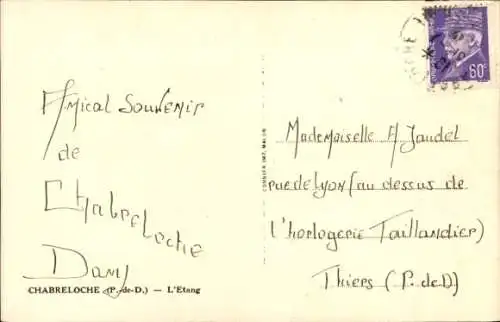 60c
Amical Souvenir
de
Chabreloche
Dany
CHABRELOCHE (P.-de-D.) — L'Etang
Mademoiselle A Jaudel
rue de Lyon (au dessus de
l'horlogerie Taillandier)
Thiers (P.deD)